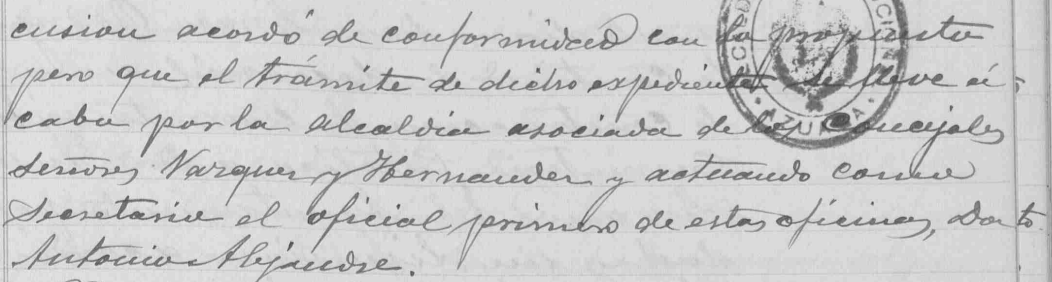 cusion acordó de conformidad con lo propuesto
pero que el trámite de dicho expediente se lleve á
cabo por la alcaldia asociada de los Concejales
señores Vazquez y Hernandez y actuando como
Secretario el oficial primero de estas oficinas, Don
Antonio Alejandre.